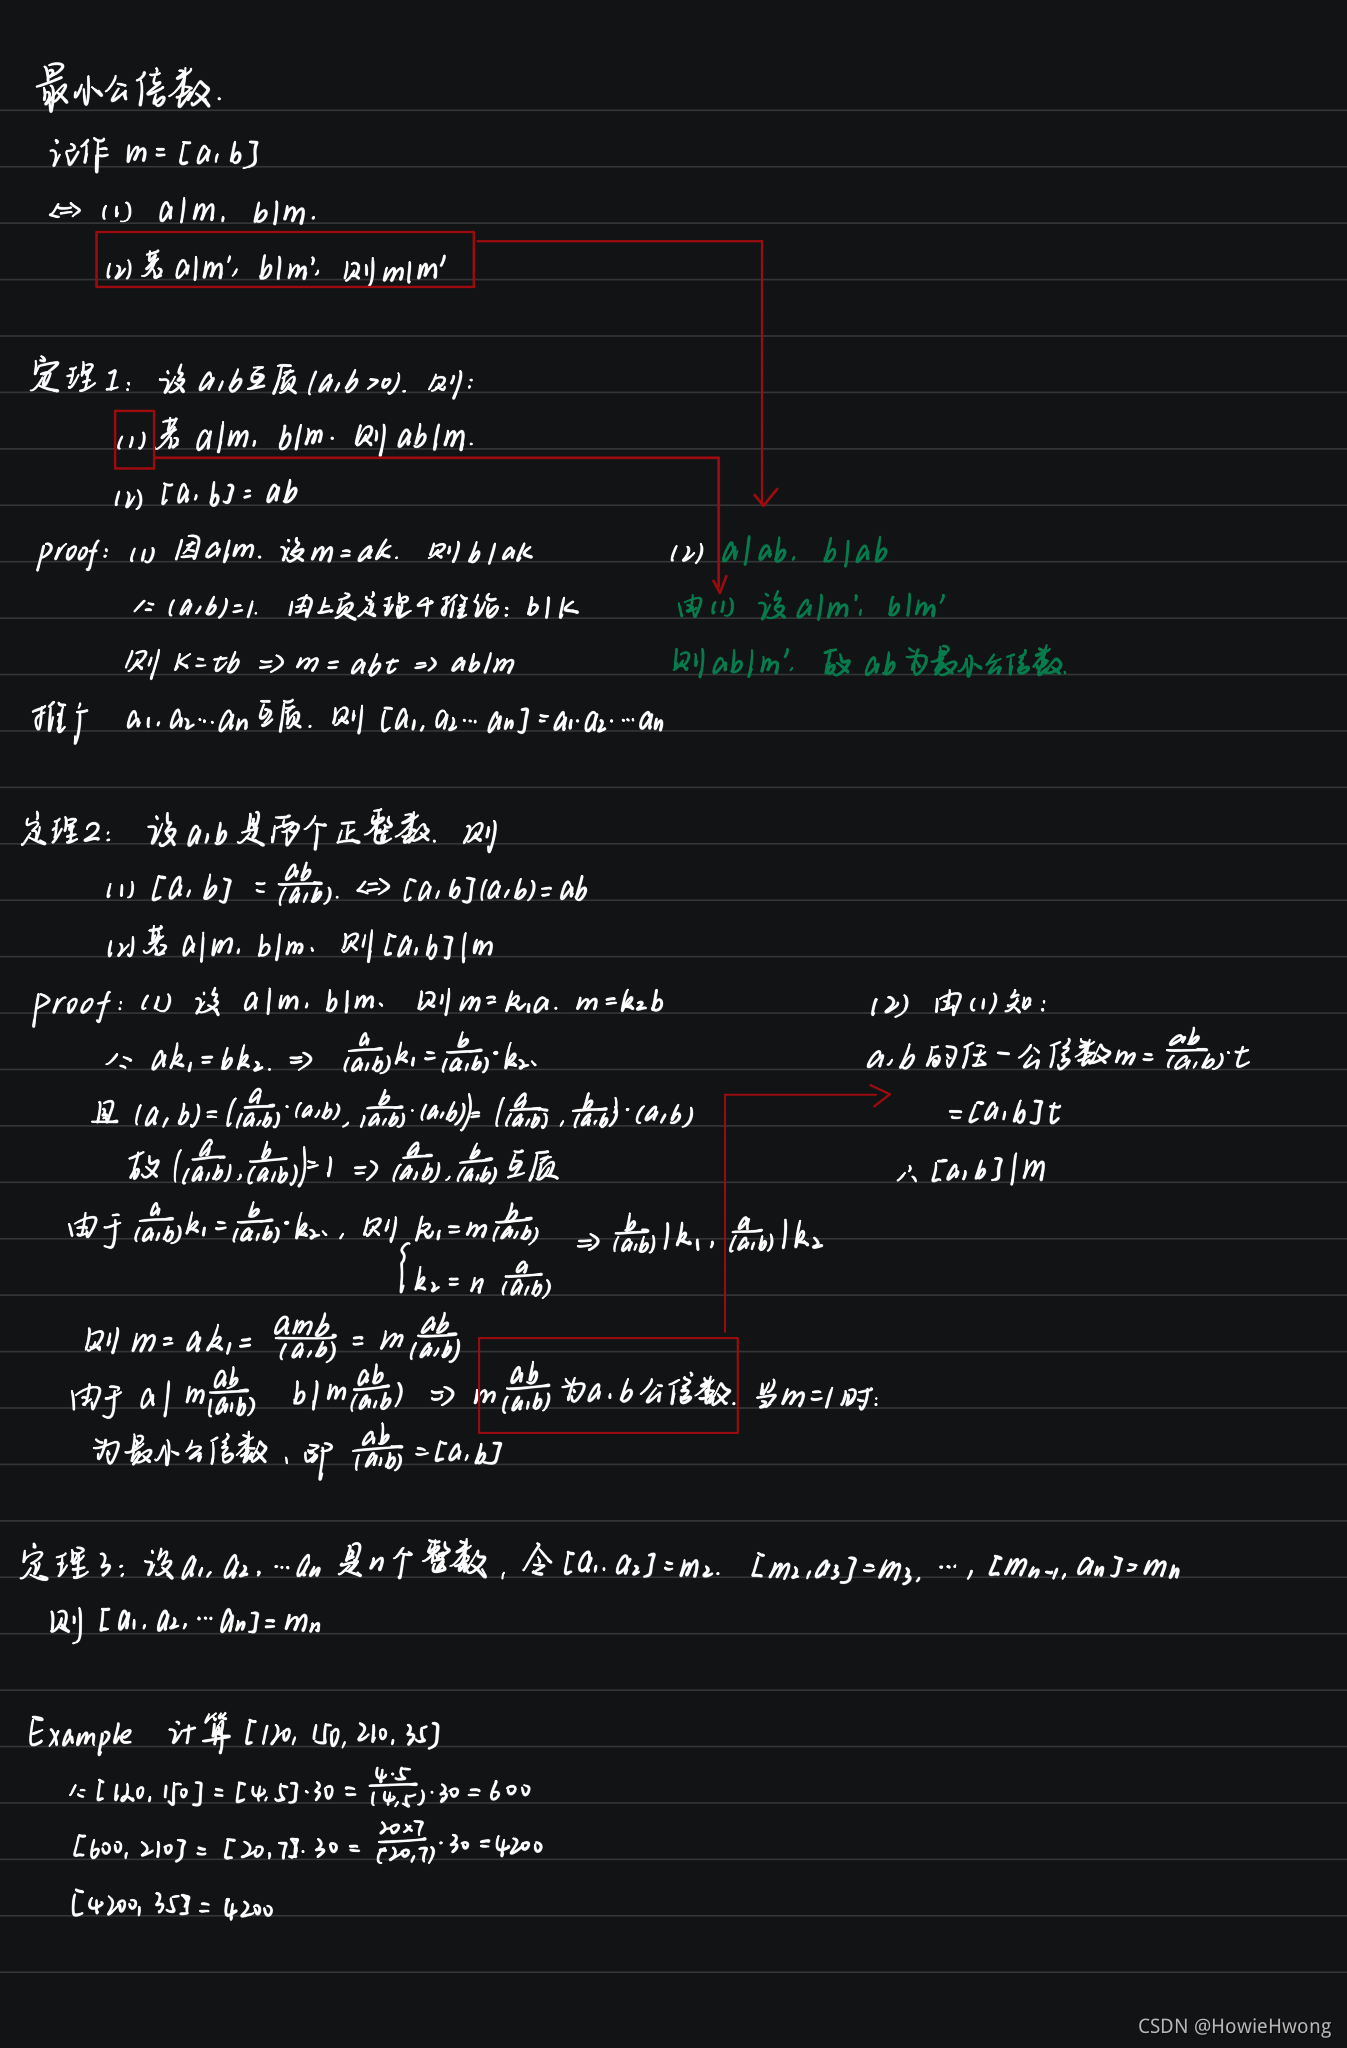 最小公倍数.
记作 m = [a, b]
⇔ (1) a|m, b|m.
(2) 若 a|m', b|m', 则 m|m'
定理1: 设 a,b 互质 (a,b>0). 则:
(1) 若 a|m, b|m. 则 ab|m.
(2) [a, b] = ab
proof: (1) 因 a|m. 设 m = ak. 则 b|ak
∵ (a,b)=1. 由上页定理4推论: b|k
则 k = tb ⇒ m = abt ⇒ ab|m
(2) a|ab, b|ab
由(1) 设 a|m', b|m'
则 ab|m'. 故 ab 为最小公倍数.
推广 a₁, a₂…aₙ 互质. 则 [a₁, a₂…aₙ] = a₁·a₂·…aₙ
定理2: 设 a,b 是两个正整数. 则
(1) [a, b] = ab/(a,b). ⇔ [a, b](a,b) = ab
(2) 若 a|m, b|m, 则 [a,b]|m
proof: (1) 设 a|m, b|m, 则 m = k₁a. m = k₂b
∵ ak₁ = bk₂. ⇒ a/(a,b) k₁ = b/(a,b)·k₂,
且 (a, b) = (a/(a,b)·(a,b), b/(a,b)·(a,b)) = (a/(a,b), b/(a,b))·(a,b)
故 (a/(a,b), b/(a,b)) = 1 ⇒ a/(a,b), b/(a,b) 互质
由于 a/(a,b) k₁ = b/(a,b)·k₂, 则 { k₁ = m b/(a,b) ⇒ b/(a,b) | k₁, a/(a,b) | k₂
k₂ = n a/(a,b)
则 m = ak₁ = amb/(a,b) = m ab/(a,b)
由于 a | m ab/(a,b) b | m ab/(a,b) ⇒ m ab/(a,b) 为 a,b 公倍数. 当 m=1 时:
为最小公倍数, 即 ab/(a,b) = [a,b]
(2) 由(1)知:
a,b 的任一公倍数 m = ab/(a,b)·t
= [a,b]t
∴ [a,b]|m
定理3: 设 a₁, a₂, …aₙ 是 n 个整数, 令 [a₁, a₂] = m₂. [m₂, a₃] = m₃, …, [mₙ₋₁, aₙ] = mₙ
则 [a₁, a₂, …aₙ] = mₙ
Example 计算 [120, 150, 210, 35]
∵ [120, 150] = [4,5]·30 = 4·5/(4,5)·30 = 600
[600, 210] = [20,7]·30 = 20×7/(20,7)·30 = 4200
[4200, 35] = 4200
CSDN @HowieHwong